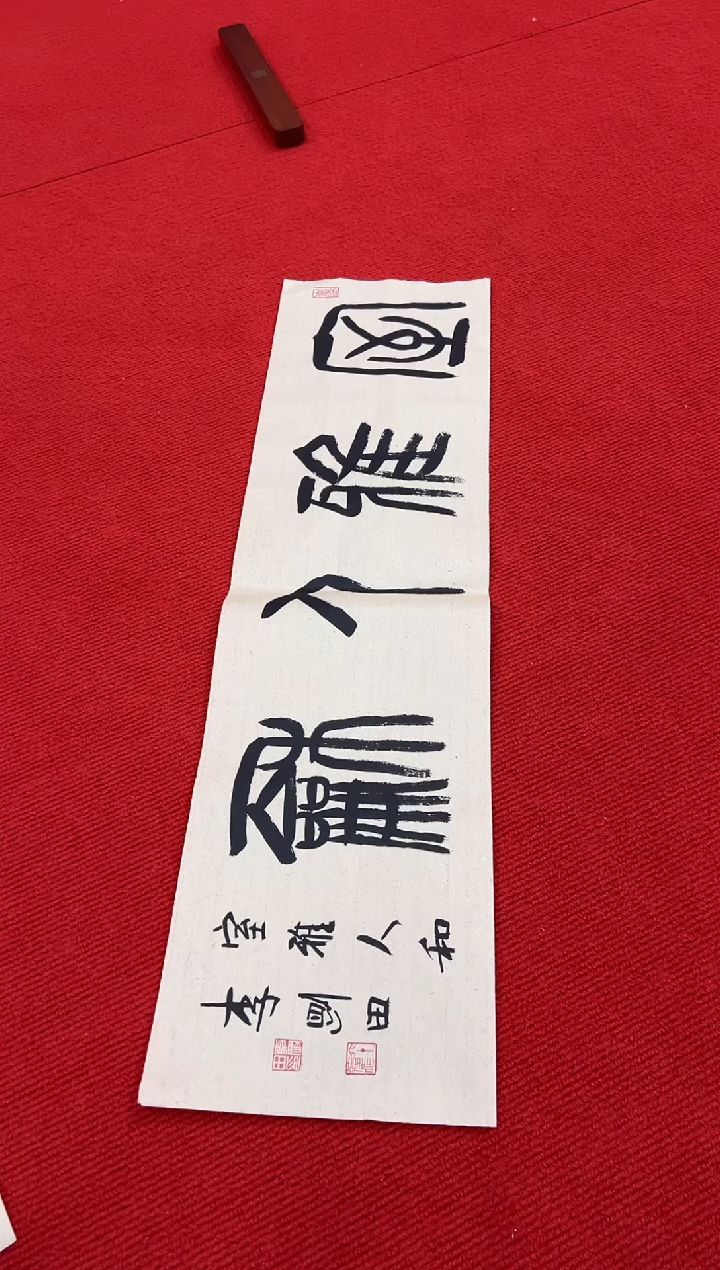 室雅人龢
室雅人和
李剛田